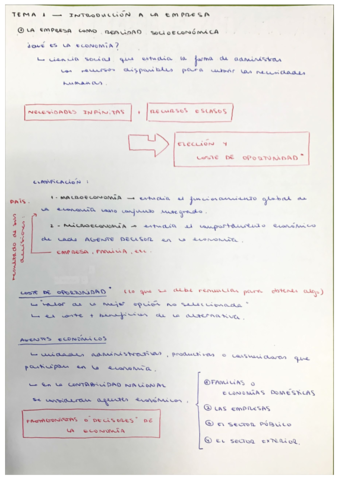 TEMA 1 → INTRODUCCIÓN A LA EMPRESA
① LA EMPRESA COMO REALIDAD SOCIOECONÓMICA
¿QUÉ ES LA ECONOMÍA?
↳ ciencia social que estudia la forma de administrar
los recursos disponibles para cubrir las necesidades
humanas.
NECESIDADES INFINITAS
RECURSOS ESCASOS
ELECCIÓN Y
COSTE DE OPORTUNIDAD*
CLASIFICACIÓN:
1. MACROECONOMÍA → estudia el funcionamiento global de
la economía como conjunto integrado.
2. MICROECONOMÍA → estudia el comportamiento económico
de cada AGENTE DECISOR en la economía.
↳ EMPRESA, FAMILIA, etc.
PAÍS
resultado de sus
decisiones.
COSTE DE OPORTUNIDAD* (lo que se debe renunciar para obtener algo)
↳ "valor de la mejor opción no seleccionada"
↳ es coste + beneficios de la alternativa.
AGENTES ECONÓMICOS
↳ unidades administrativas, productivas o consumidoras que
participan en la economía.
↳ En la CONTABILIDAD NACIONAL
se consideran agentes económicos.
① FAMILIAS o
ECONOMÍAS DOMÉSTICAS
② LAS EMPRESAS
③ EL SECTOR PÚBLICO
④ EL SECTOR EXTERIOR.
PROTAGONISTAS o "DECISORES" DE
LA ECONOMÍA